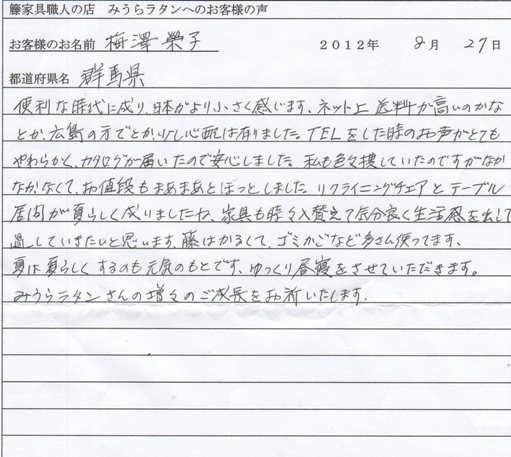 籐家具職人の店 みうらラタンへのお客様の声
お客様のお名前 梅澤榮子 2012年 8月 27日
都道府県名 群馬県
便利な時代に成り、日本がより小さく感じます、ネット上 送料が高いのかな
とか、広島の方でとか少し心配は有りました。TELをした時のお声がとても
やわらかく、カタログが届いたので安心しました。私も色々捜していたのですがなか
なかなくて、お値段もまあまあとほっとしました リクライニングチェアとテーブル
居間が夏らしく成りましたね、家具も時々入替えて気分良く生活感を出して
過していきたいと思います、藤はかるくて、ゴミかごなど多さん使ってます、
夏は夏らしくするのも元気のもとです、ゆっくり昼寝をさせていただきます。
みうらラタンさんの増々のご成長をお祈いたします、